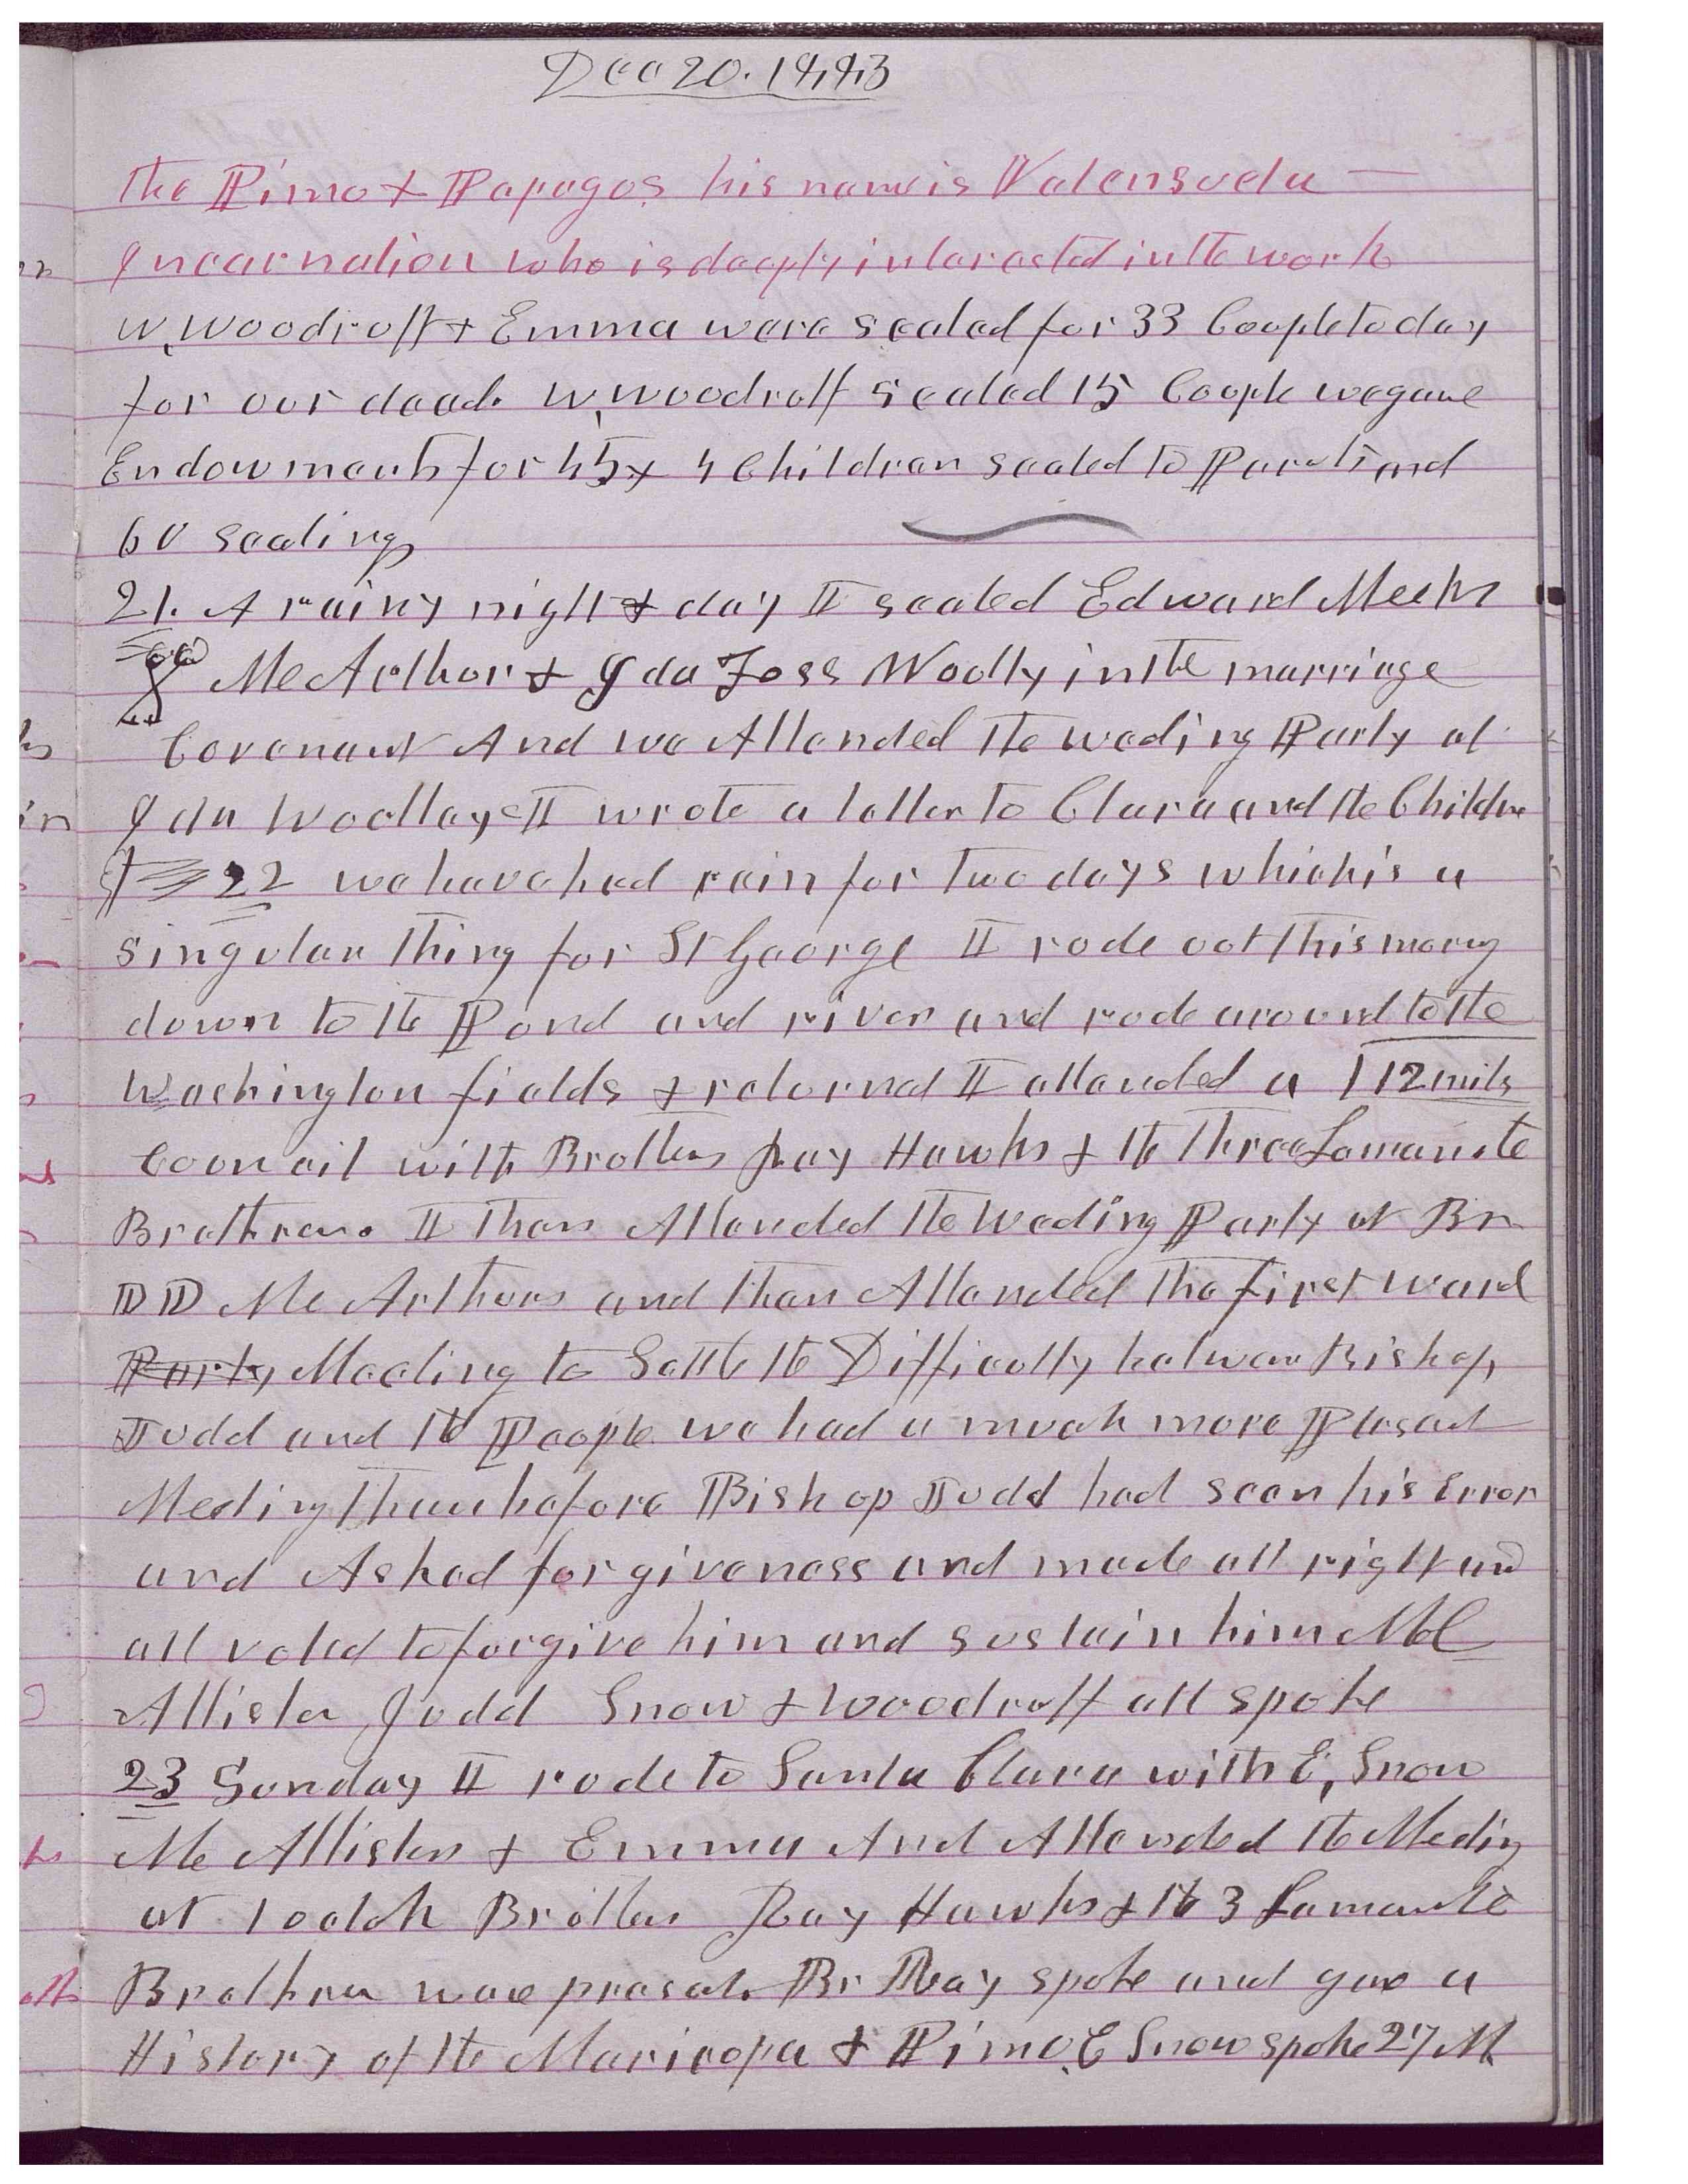 Dec 20. 1883
the Pimo & Papagos his name is Valensoela —
Incarnation who is deeply interested in the work
W, Woodruff & Emma were sealed for 33 Couple to day
for our dead. W, Woodruff sealed 15 Couple we gave
Endowments for 45 & 4 Children sealed to Parents and
60 sealings
21. A rainy night & day I sealed Edward Meeks
McArthor & Ida Foss Woolly in the marriage
Covenant And we Attended the weding Party at
Ida Woolley I wrote a letter to Clara and the Children
22 we have had rain for two days which is a
singular thing for St George I rode out this morng
down to the Pond and river and rode around to the
Washington fields & returnd I attended a 12 miles
Councail with Brothers Ray Hawks & the Three Lamanite
Brethren. I then Attended the Weding Party at Br
D D McArthurs and then Attended the first ward
Party Meeting to Settle the Difficulty between Bishop
Judd and the People we had a much more Plesant
Meeting than before Bishop Judd had seen his Error
and Asked forgiveness and made all right and
all voted to forgive him and sustain him Mc
Allister Judd Snow & Woodruff all spoke
23 Sunday I rode to Santa Clara with E, Snow
McAllister & Emma And Attended the Meeting
at 10 oclok Brother Ray Hawks & the 3 Lamanite
Brethren ware present. Br Ray spoke and gave a
History of the Maricopa & Pimo, E Snow spoke 27 M